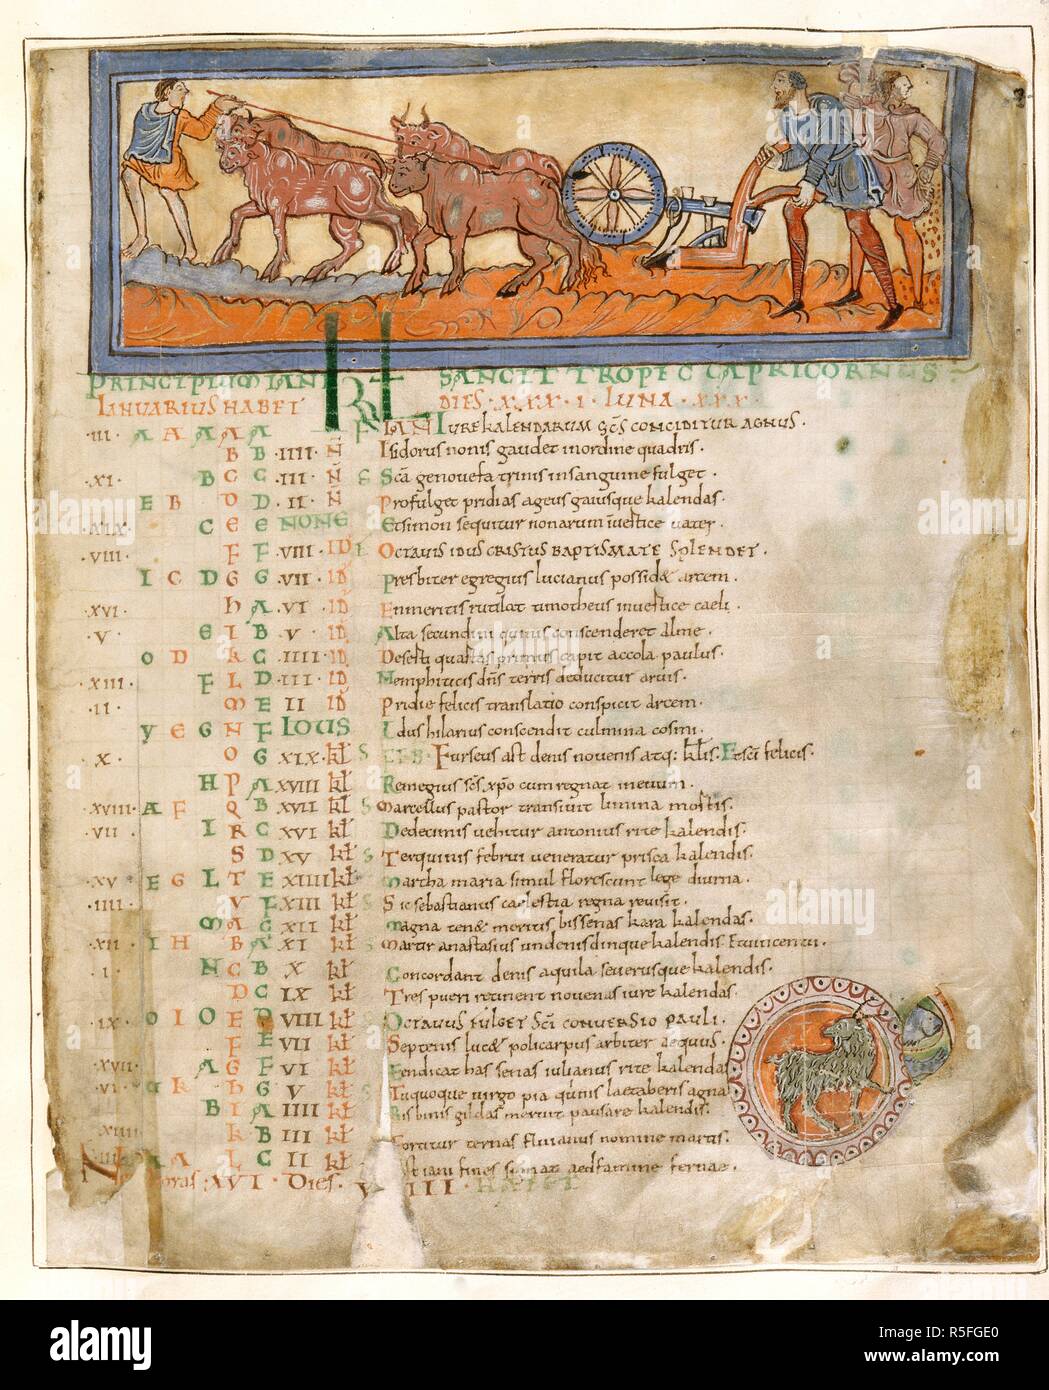 PRINCIPIUM IANI SANCIT TROPEC CAPRICORNUS
IANUARIUS HABET KL DIES · XXX · I · LUNA · XXX ·
· III · A A A A A F IANI IURE KALENDARUM SCS CONCIDITUR AGNUS .
B B · IIII · N Isidorus nonis gaudet in ordine quadris .
· XI · B C C · III · N S Sca genouefa trinis in sanguine fulget .
E B D D · II · N Profulget pridias ageus gaiusque kalendas .
· XIX · C E E NONE Et simon sequitur nonarum in uestice uates .
· VIII · F F · VIII · ID OCTAVIS IDUS CRISTUS BAPTISMATE SPLENDET .
I C D G G · VII · ID Presbiter egregius lucianus possid& arcem .
· XVI · H A · VI · ID Enmeritis rutilat timotheus in uestice caeli .
· V · E I B · V · ID Alta secundini quinis conscenderet alme .
O D K C · IIII · ID Deserti quartas primus capit accola paulus .
· XIII · F L D · III · ID Memphiticis dns terris deducitur aruis .
· II · M E II ID Pridie felicis translatio conspicit arcem .
Y E G N F IDUS Idus hilarius conscendit culmina cosmi .
· X · O G XIX · kł S Furseus ast denis nouenis atq: kłis . Et sci felicis .
H P A XVIII kł Remegius scs xpo cum regnat in euum .
· XVIII · A F Q B XVII kł S Marcellus pastor transiuit lumina mortis .
· VII · I R C XVI kł Dedecimis uehitur antonius rite kalendis .
S D XV kł S Ter quinis februi ueneratur prisca kalendis .
· XV · E G L T E XIIII kł Martha maria simul florescunt lege diurna .
· IIII · V F XIII kł S Sic sebastianus caelestia regna reuisit .
M A G XII kł Magna ten& meritis bissenas kara kalendas .
· XII · I H B A XI kł Martir anastasius undenis dinque kalendis . Et uincenti .
· I · N C B X kł Concordant denis aquila seuerusque kalendis .
D C IX kł Tres pueri retinent nouenas iure kalendas
· IX · O I O E D VIII kł OCTAVUS FULGET SCI CONVERSIO PAULI .
F E VII kł Septenis luc& policarpus arbiter aequus .
· XVII · A G F VI kł Uendicat has senas iulianus rite kalendas
· VI · K H G V kł S Tuquoque uirgo pia quinis laetaberis agna
B I A IIII kł Bis binis gildas meruit pausare kalendis .
· XIIII · K B III kł Sortitur ternas fluianus nomine martis .
A L C II kł iani fines signat aedfamine fernae .
horas : XVI · Dies · VIII · HABET
alamy
alamy
Image ID: R5FGE0
www.alamy.com